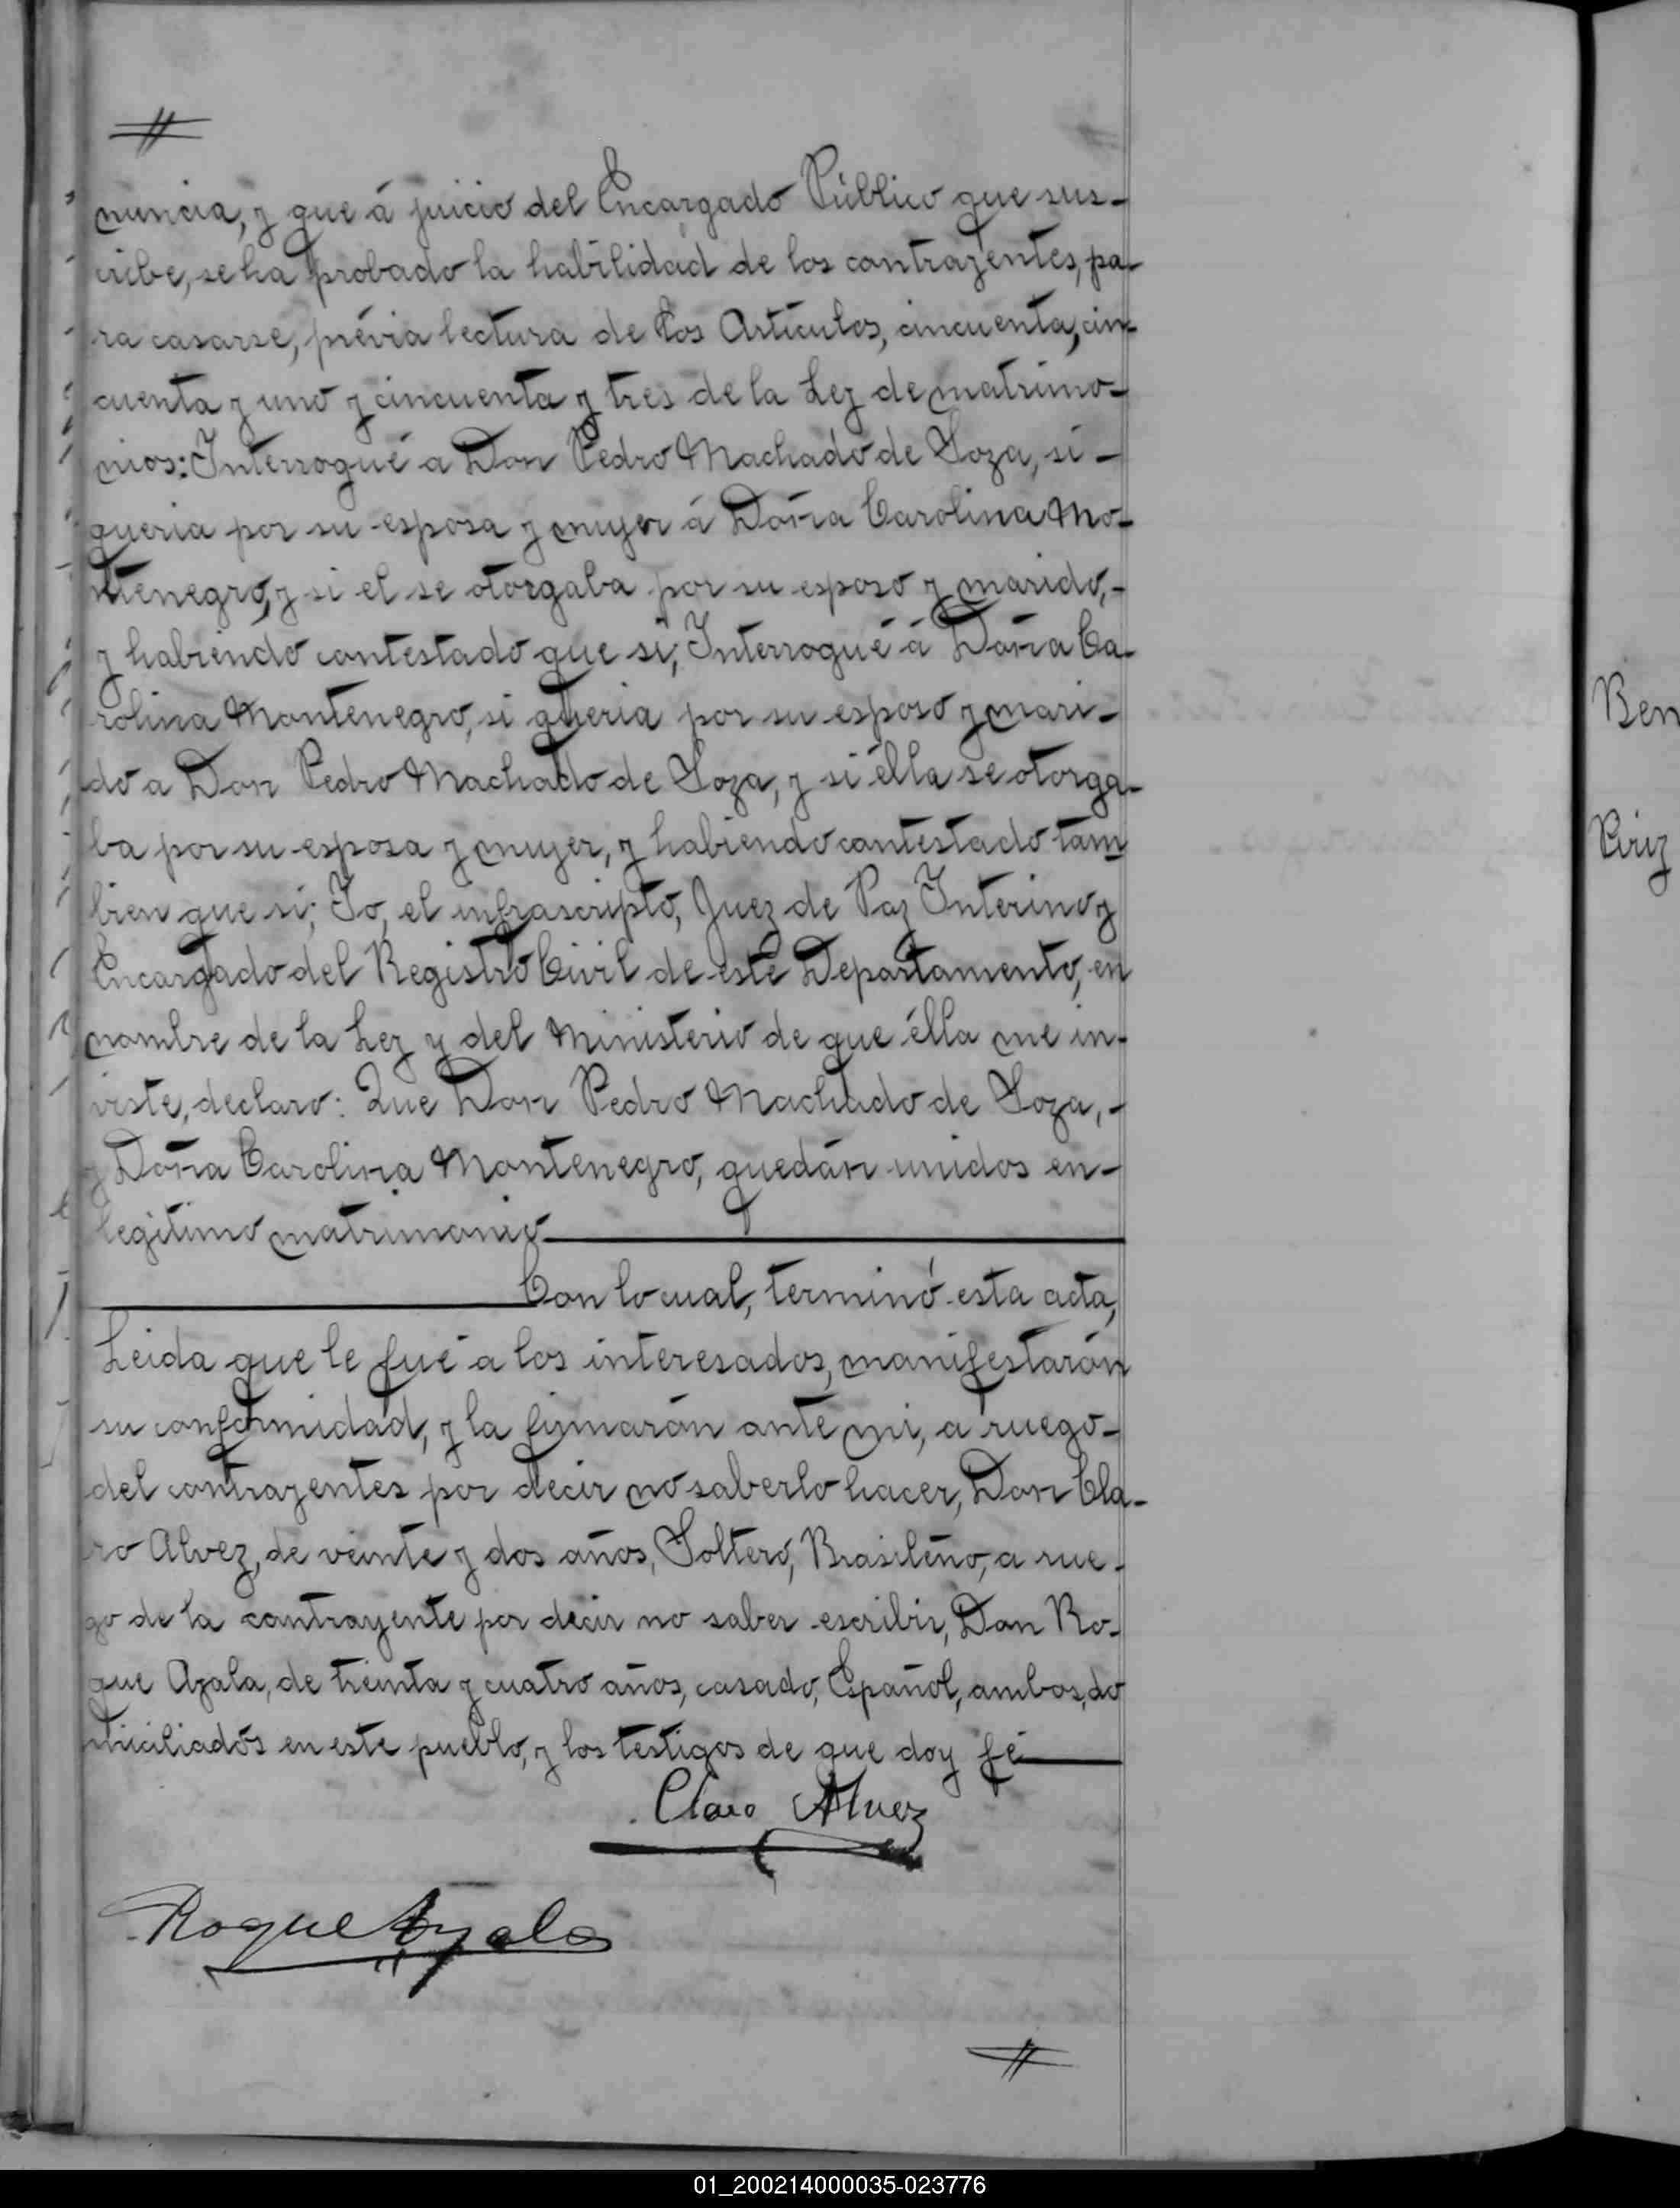 nuncia, y que á juicio del Encargado Público que sus-
cribe, se ha probado la habilidad de los contrayentes, pa-
ra casarse, prévia lectura de los Articulos, cincuenta, cin-
cuenta y uno y cincuenta y tres de la Ley de matrimo-
nios: Interrogué a Don Pedro Machado de Soza, si -
queria por su esposa y mujer á Doña Carolina Mo-
ntenegro, y si el se otorgaba por su esposo y marido, -
y habiendo contestado que si; Interrogué á Doña Ca-
rolina Montenegro, si queria por su esposo y mari-
do a Don Pedro Machado de Soza, y si élla se otorga-
ba por su esposa y mujer, y habiendo contestado tam
bien que si; Yo, el infrascripto, Juez de Paz Interino y
Encargado del Registro Civil de este Departamento, en
nombre de la Ley y del Ministerio de que élla me in-
viste, declaro: Que Don Pedro Machado de Soza, -
y Doña Carolina Montenegro, quedán unidos en -
legitimo matrimonio
Con lo cual, terminó esta acta,
Leida que le fué a los interesados, manifestarón
su conformidad, y la firmarón ante mi, a ruego -
del contrayentes por decir no saberlo hacer, Don Cla-
ro Alvez, de veinte y dos años, Soltero, Brasileño, a rue-
go de la contrayente por decir no saber escribir, Don Ro-
que Ayala, de treinta y cuatro años, casado, Español, ambos, do
miciliados en este pueblo, y los testigos de que doy fé
Claro Alvez
Roque Ayala
Ben
Piriz
01_200214000035-023776